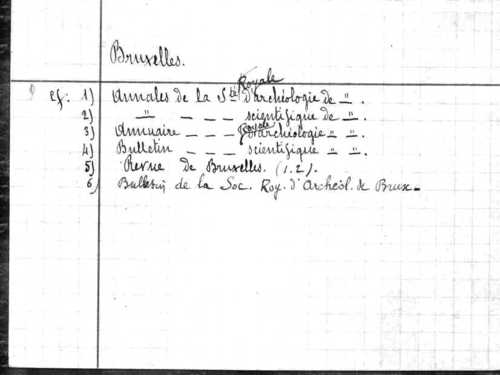 Bruxelles.
Royale
Cf: 1) Annales de la Sté d'archéologie de — " — .
2) " — — — scientifique de — " — .
Royale
3) Annuaire — — — d'archéologie — " — " — .
4) Bulletin — — — scientifique — " — " — .
5) Revue de Bruxelles. (1.2).
6) Bulletin de la Soc. Roy. d'Archéol. de Brux.